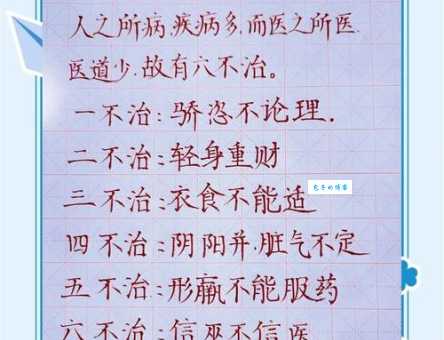 人之所病,疾病多,而医之所医,
医道少,故有六不治。
一不治:骄恣不论理.
二不治:轻身重财
三不治:衣食不能适
四不治:阴阳并,脏气不定
五不治:形羸不能服药
六不治:信巫不信医